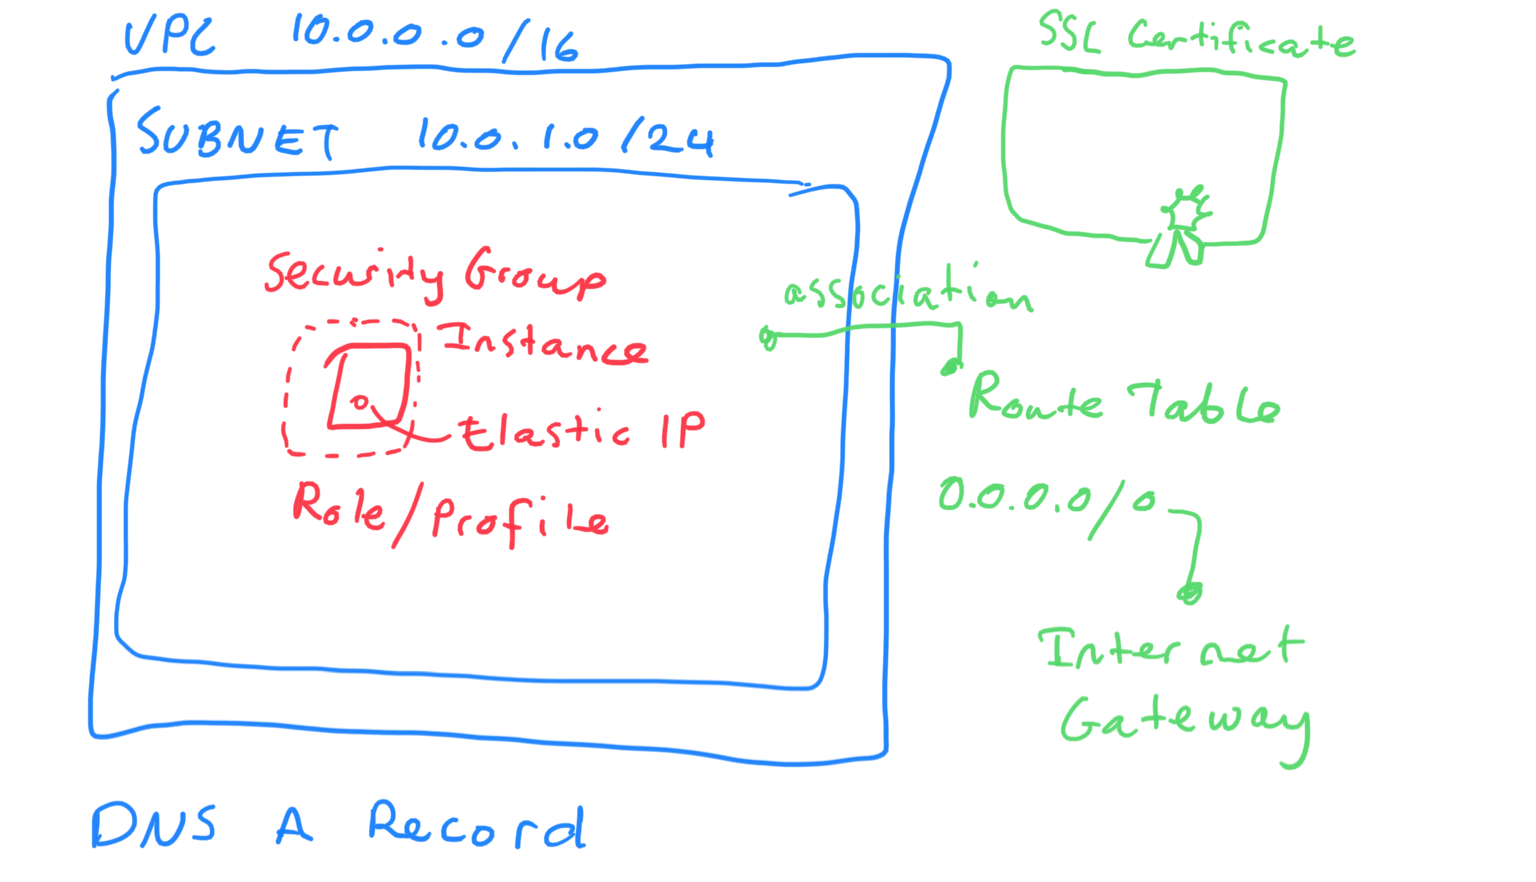 VPC 10.0.0.0/16
SUBNET 10.0.1.0/24
Security Group
Instance
Elastic IP
Role/Profile
SSL Certificate
association
Route Table
0.0.0.0/0
Internet
Gateway
DNS A Record